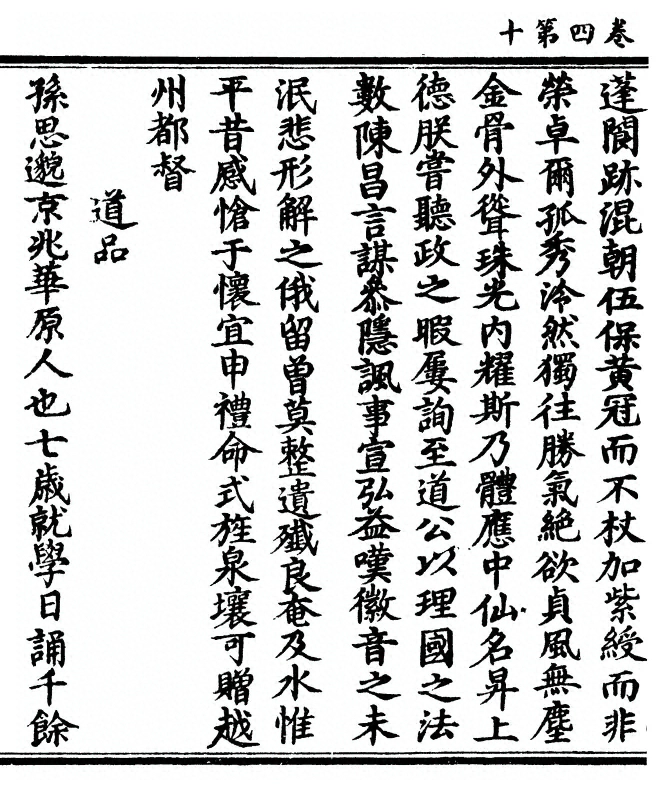 卷四第十
蓬閬跡混朝伍保黃冠而不杖加紫綬而非
榮卓爾孤秀泠然獨往勝氣絕欲貞風無塵
金骨外聳珠光內耀斯乃體應中仙名昇上
德朕嘗聽政之暇屢詢至道公以理國之法
數陳昌言謀叅隱諷事宣弘益嘆徽音之未
泯悲形解之俄留曾莫整遺殲良奄及水惟
平昔感愴于懷宜申禮命式旌泉壤可贈越
州都督
道品
孫思邈京兆華原人也七歲就學日誦千餘